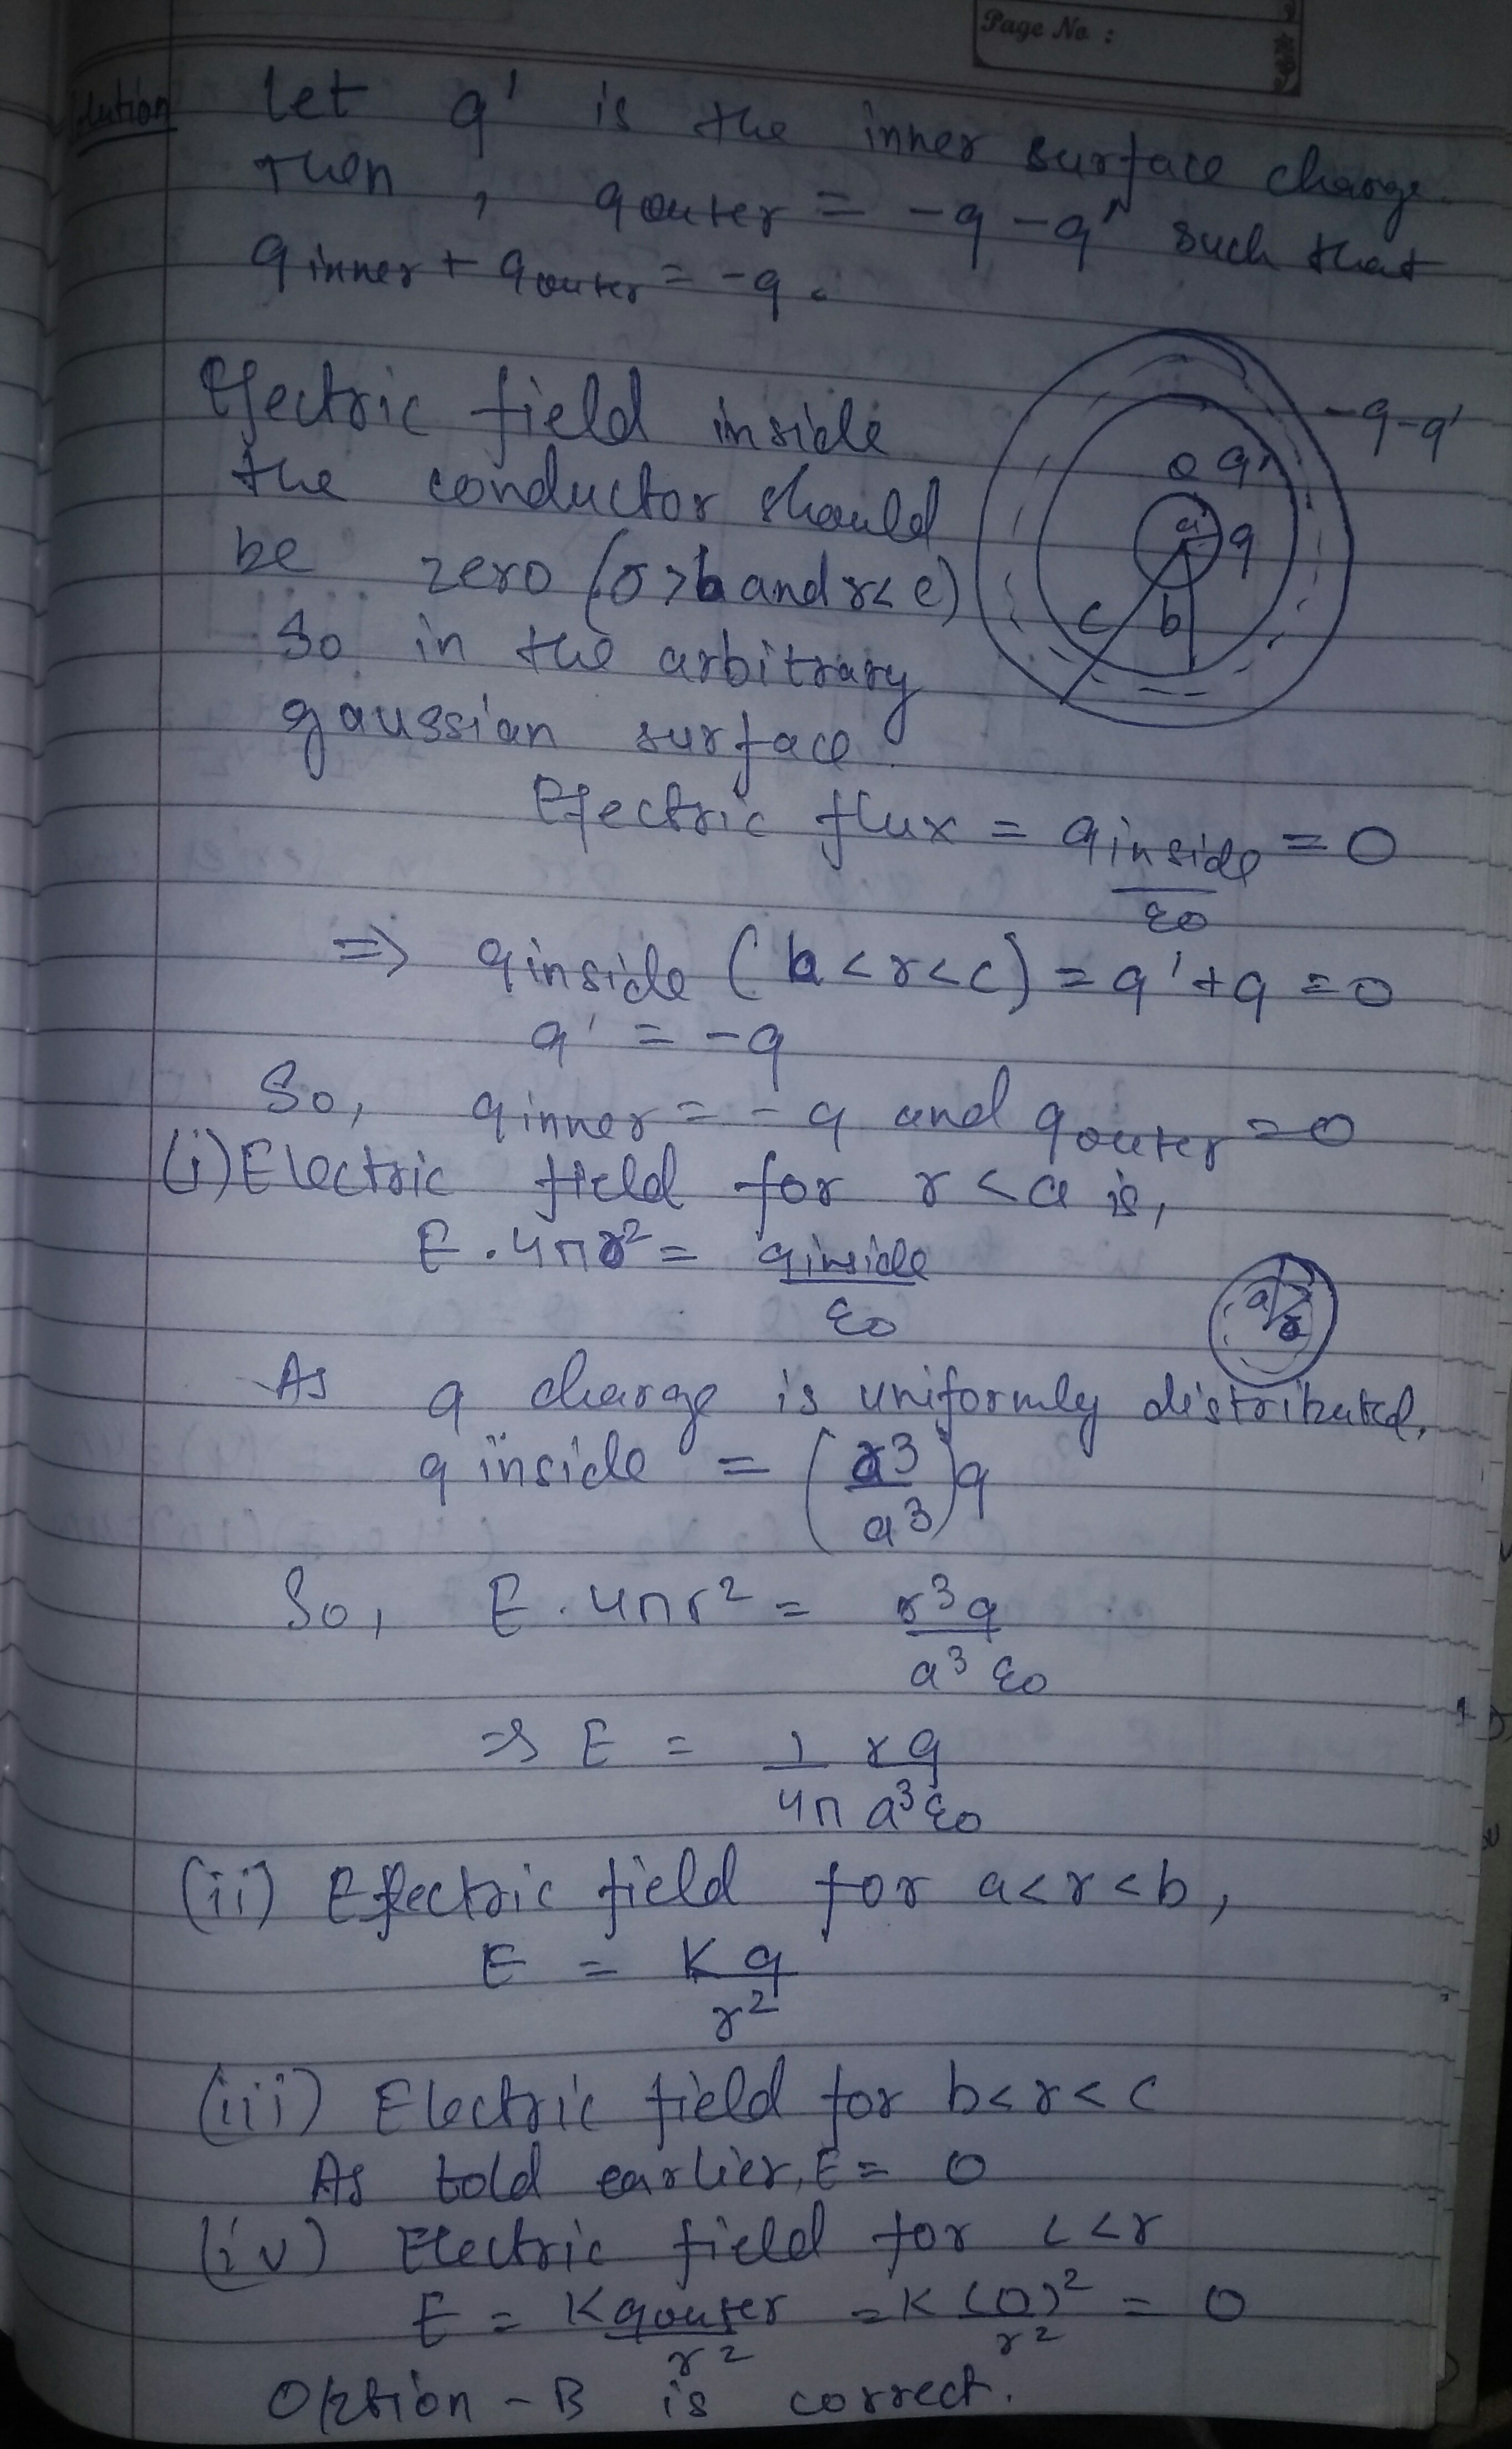 Page No :
lution
Let q' is the inner surface charge.
Then, qouter = -q-q' such that
qinner + qouter = -q.
Electric field inside
the conductor should
be zero (r>b and r<c)
So in the arbitrary
gaussian surface
-q-q'
q'
a
q
c
b
Electric flux = qinside/ε0 = 0
=> qinside (b<r<c) = q'+q = 0
q' = -q
So, qinner = -q and qouter = 0
(i) Electric field for r<a is,
E.4πr² = qinside/ε0
a
r
As q charge is uniformly distributed,
q inside = (r³/a³)q
So, E.4πr² = r³q/a³ε0
=> E = 1/4π rq/a³ε0
(ii) Electric field for a<r<b,
E = Kq/r²
(iii) Electric field for b<r<c
As told earlier, E = 0
(iv) Electric field for c<r
E = Kqouter/r² = K(0)²/r² = 0
Option - B is correct.